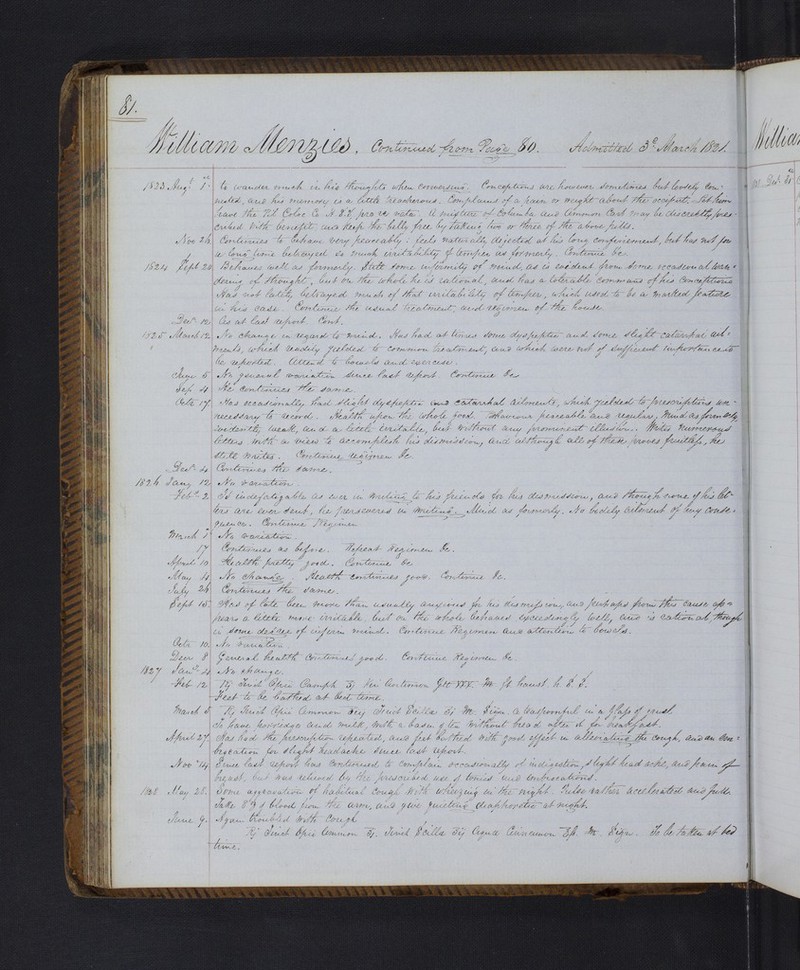 81.
William Menzies, Continued from Page 80. Admitted 3d March 1821.
1823 Augt 1st to wander much in his thoughts when conversing. Conceptions are however sometimes but loosely con-
nected, and his memory is a little treacherous. Complains of a pain or weight about the occiput. Let him
have the Pil. Coloc Co pro re nata. A mixture of Columba and Ammon Carb may be
with benefit, and keep the belly free by taking two or three of the above pills.
Nov 26 Continues to behave very peaceably: feels naturally dejected at his long confinement, but has not for
a long time betrayed so much irritability of temper as formerly. Continue &c
1824 Sept 20 Behaves well as formerly. Still some infirmity of mind, as is evident from some occasional wan-
dering of thought, but on the whole he is rational, and has a tolerable command of his conceptions
Has not lately betrayed much of that irritability of temper, which used to be a marked feature
in his case. Continue the usual treatment, and regimen of the house
Decr 12 As at last report. Cont.
1825 March 12 No change in regard to mind. Has had at times some dyspeptic and some slight catarrhal ail-
ments, which readily yielded to common treatment, and which were not of sufficient importance to
be reported. Attend to bowels and exercise.
June 5 No general variation since last report. Continue &c
Sep 4 He continues the same.
Octr 17 Has occasionally had slight dyspeptic and catarrhal ailments, which yielded to prescriptions un-
necessary to record. Health upon the whole good. Behaviour peaceable and regular, Mind as formerly,
evidently weak, and a little irritable, but without any prominent illusion. Writes numerous
letters with a view to accomplish his dismission, and although all of these proves fruitless, he
still writes. Continue regimen &c.
Decr 4 Continues the same.
1826 Jany 12 No variation.
Feby 2 Is indefatigable as ever in writing to his friends for his dismission, and though none of his let-
ters are ever sent, he perseveres in writing. Mind as formerly. No bodily ailment of any conse-
quence. Continue Regimen
March 5 No variation.
17 Continues as before. Repeat Regimen &c.
April 10 Health pretty good. Continue &c
May 4 No change. Health continues good. Continue &c.
July 26 Continues the same.
Sept 15 Has of late been more than usually anxious for his dismission, and perhaps from this cause ap-
pears a little more irritable, but on the whole behaves exceedingly well, and is rational, though
in some degree of infirm mind. Continue Regimen and attention to bowels.
Octr 10 No variation
Decr 8 General health continues good. Continue Regimen &c
1827 Jany 4 No change.
Feb 12 Rx Tinct Opii Camph Vin Antimon Gtt XXX. M. ft haust. h. s. s.
Feet to be bathed at bed time.
March 5 Rx Tinct Opii Ammon Tinct Scillae M. Sign. A teaspoonful in a glass of gruel
To have porridge and milk, with a basin of tea without bread after it for breakfast.
April 27 Has had the prescription repeated, and feet bathed with good effect in alleviating the cough, and an em-
brocation for slight headache since last report
Novr 14 Since last report has continued to complain occasionally of indigestion, slight head ache, and pain of
breast, but was relieved by the prescribed use of tonics and embrocations.
1828 May 28 Some aggravation of habitual cough with wheezing in the night. Pulse rather accelerated and full.
Take of blood from the arm, and give quieting diaphoretic at night.
June 9 Again troubled with cough
Rx Tinct Opii Ammon Tinct Scillae Aqua Cinnamon M. Sign. To be taken at bed
time.
William